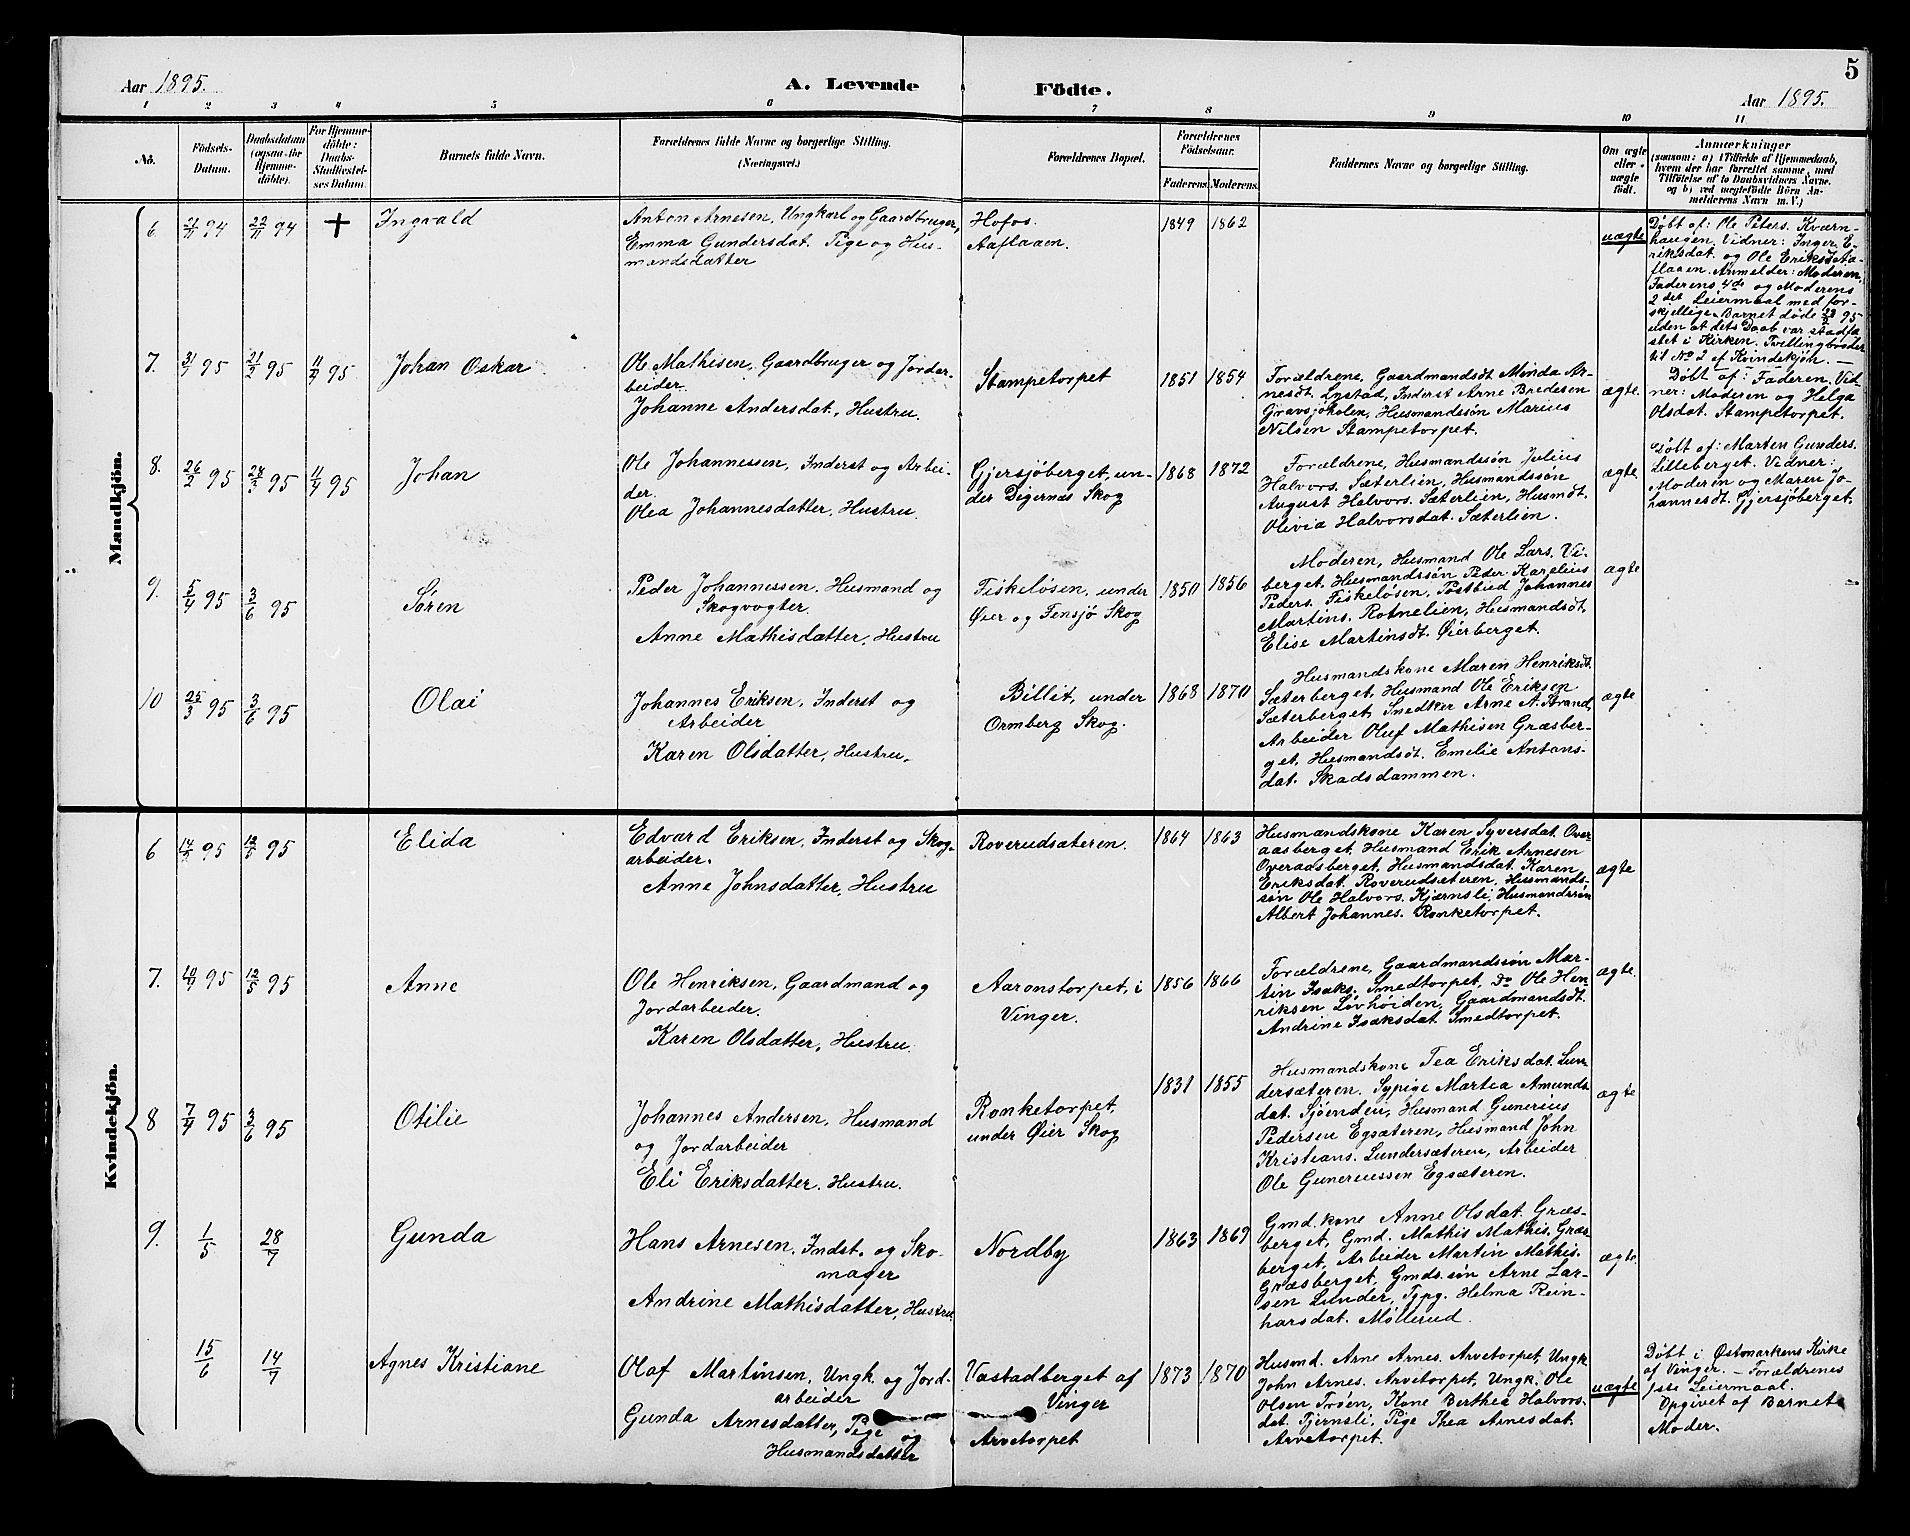 5
Aar 1895.
A. Levende Födte.
Aar 1895.
1 2 3 4 5 6 7 8 9 10 11
No.
Födsels-
Datum.
Daabsdatum
(ogsaa for
Hjemme-
döbte).
For Hjemme-
döbte:
Daabs-
Stadfæstel-
ses Datum.
Barnets fulde Navn.
Forældrenes fulde Navne og borgerlige Stilling.
(Næringsvei.)
Forældrenes Bopæl.
Forældrenes
Födselsaar.
Faderens. Moderens.
Faddernes Navne og borgerlige Stilling.
Om ægte
eller
uægte
födt.
Anmærkninger
(saasom: a) i Tilfælde af Hjemmedaab,
hvem der har forrettet samme, med
Tilföielse af to Daabsvidners Navne,
og b) ved uægtefödte Börn An-
melderens Navn m. V.)
Mandkjön.
6. 94 22/11 94 + Ingvald
Anton Arnesen, Ungkarl og Gaardbruger,
Emma Gundersdat. Pige og Hus-
mandsdatter
Hofos.
Aaflaaen.
1849 1862
uægte
Døbt af: Ole Peters. Kværn-
haugen, Vidner: Inger E-
riksdat. og Ole Eriks
flaaen. Anmelder: Moderen,
Faderens 4de og Moderens
2det Leiermaal med for-
skjellige. Barnet døde 95
uden at dets Daab var stadfæ-
stet i Kirken. Tvillingbroder
til No 2 af Kvindekjøn. —
7. 31/1 95 21/2 95 11/4 95 Johan Oskar
Ole Mathisen, Gaardbruger og Jordar-
beider.
Johanne Andersdat., Hustru.
Stampetorpet
1851 1854
Forældrene, Gaardmandsdt. Minda Ar-
nesdt. Lystad, Inderst Arne Bredesen
Gravsjøholen, Husmandssøn Marius
Nilsen Stampetorpet.
ægte.
Døbt af: Faderen. Vid-
ner: Moderen og Helga
Olsdat. Stampetorpet.
8. 26/2 95 24/3 95 11/4 95 Johan
Ole Johannessen, Inderst og Arbei-
der.
Olea Johannesdatter, Hustru.
Gjersjøberget, un-
der Digernæs Skog
1868 1872
Forældrene, Husmandssøn Julius
Halvors. Sæterlien, Husmandssøn
August Halvors. Sæterlien, Husmdt.
Olivia Halvorsdat. Sæterlien.
ægte.
Døbt af: Marten Gunders.
Lilleberget. Vidner:
Moderen og Maren Jo-
hannesdt. Gjersjøberget.
9. 5/4 95 3/6 95 Søren
Peder Johannessen. Husmand og
Skogvogter
Anne Mathisdatter, Hustru
Fiskeløsen, under
Øier og Fensjø Skog
1850 1856
Moderen, Husmand Ole Lars. Vi-
berget. Husmandssøn Peder Karelius
Peders. Fiskeløsen, Postbud Johannes
Martins. Rotnelien, Husmandsdt.
Elise Martinsdt. Øierberget.
ægte
10 25/3 95 3/6 95 Olai
Johannes Eriksen, Inderst og
Arbeider
Karen Olsdatter, Hustru.
Billit, under
Ormberg Skog.
1868 1870
Husmandskone Maren Henriksdt.
Sæterberget, Husmand Ole Eriksen
Sæterberget, Snedker Arne N. Strand,
Arbeider Oluf Mathisen Græsber-
get, Husmandsdt. Emelie Antons-
dat. Skadsdammen.
ægte
Kvindekjön.
6 95 12/5 95 Elida
Edvard Eriksen, Inderst og Skog-
arbeider.
Anne Johnsdatter, Hustru
Roverudsæteren.
1864 1863
Husmandskone Karen Syversdat. Over-
aasberget, Husmand Erik Arnesen
Overaasberget, Husmandsdat. Karen
Eriksdat. Roverudsæteren, Husmands-
søn Ole Halvors. Kjærnsli, Husmandssøn
Albert Johannes. Ronketorpet.
ægte
7. 95 12/5 95 Anne
Ole Henriksen, Gaardmand og
Jordarbeider.
Karen Olsdatter, Hustru.
Aaronstorpet, i
Vinger.
1856 1866
Forældrene, Gaardmandssøn Mar-
tin Isaks. Smedtorpet, Do Ole Hen-
riksen Løvhøiden, Gaardmandsdt.
Andrine Isaksdat. Smedtorpet.
ægte.
8 7/4 95 3/6 95 Otilie
Johannes Andersen, Husmand
og Jordarbeider
Eli Eriksdatter. Hustru.
Ronketorpet,
under Øier Skog
1831 1855
Husmandskone Tea Eriksdat. Lun-
dersæteren. Sypige Martea Amunds-
dat. Sjøenden, Husmand Gunerius
Pedersen Egsæteren, Husmand John
Kristians. Lundersæteren, Arbeider
Ole Guneriussen Egsæteren.
ægte
9. 1/5 28/7 Gunda
Hans Arnesen. Indst. og Sko-
mager
Andrine Mathisdatter, Hustru
Nordby
1863 1869
Gmd.kone Anne Olsdat. Græs-
berget, Gmd. Mathis Mathis. Græs-
berget, Arbeider Martin Mathis.
Græsberget, Gmds.søn Arne Lar-
sen Lunder, Tspg. Helma Rein-
harsdat. Møllerud.
ægte.
15/6 14/7 Agnes Kristiane
Olaf Martinsen, Ungk. og Jord-
arbeider
Gunda Arnesdatter, Pige og
Husmandsdatter
Væstadberget af
Vinger
Arvetorpet
1873 1870
Husmd. Arne Arnes. Arvetorpet, Ungk.
John Arnes. Arvetorpet, Ungk. Ole
Olsen Trøen, Kone Berthea Halvors-
dat. Tjernsli, Pige Thea Arnesdat.
Arvetorpet.
uægte
Døbt i Østmarkens Kirke
af Vinger. — Forældrenes
1ste Leiermaal.
Opgivet af Barnets
Moder.